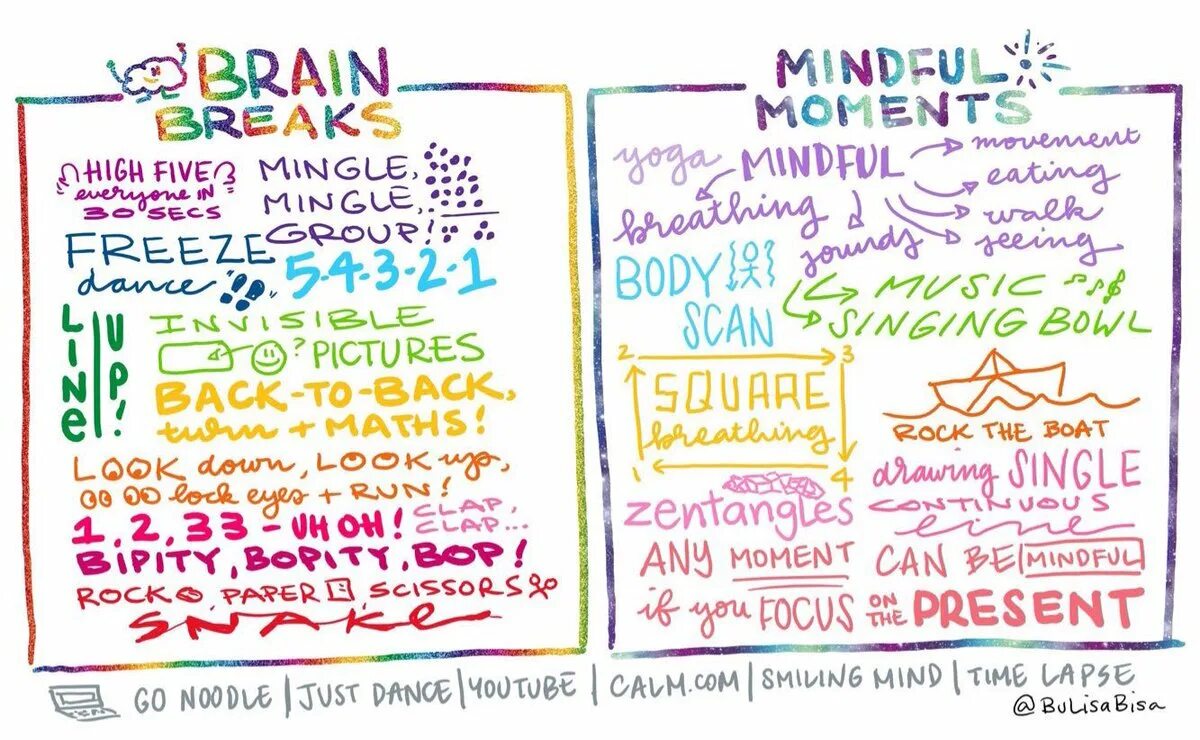 BRAIN
BREAKS
HIGH FIVE
everyone IN
30 SECS
MINGLE,
MINGLE,
GROUP!
FREEZE
dance
5-4-3-2-1
LINE
UP!
INVISIBLE
? PICTURES
BACK-TO-BACK,
turn + MATHS!
LOOK down, LOOK up,
lock eyes + RUN!
1, 2, 33 - UH OH! CLAP,
CLAP...
BIPITY, BOPITY, BOP!
ROCK, PAPER, SCISSORS
SNAKE
MINDFUL
MOMENTS
yoga MINDFUL
movement
eating
walk
seeing
breathing
sounds
BODY
SCAN
MUSIC
SINGING BOWL
2 3
SQUARE
breathing
1 4
ROCK THE BOAT
zentangles
drawing SINGLE
CONTINUOUS
line
ANY MOMENT CAN BE MINDFUL
if you FOCUS ON THE PRESENT
GO NOODLE | JUST DANCE | YOUTUBE | CALM.COM | SMILING MIND | TIME LAPSE
@BuLisaBisa